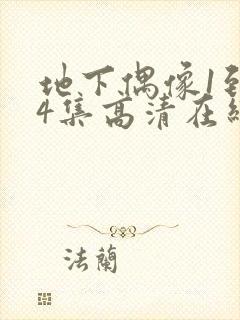 地下偶像1到
4集高清在线
法蘭